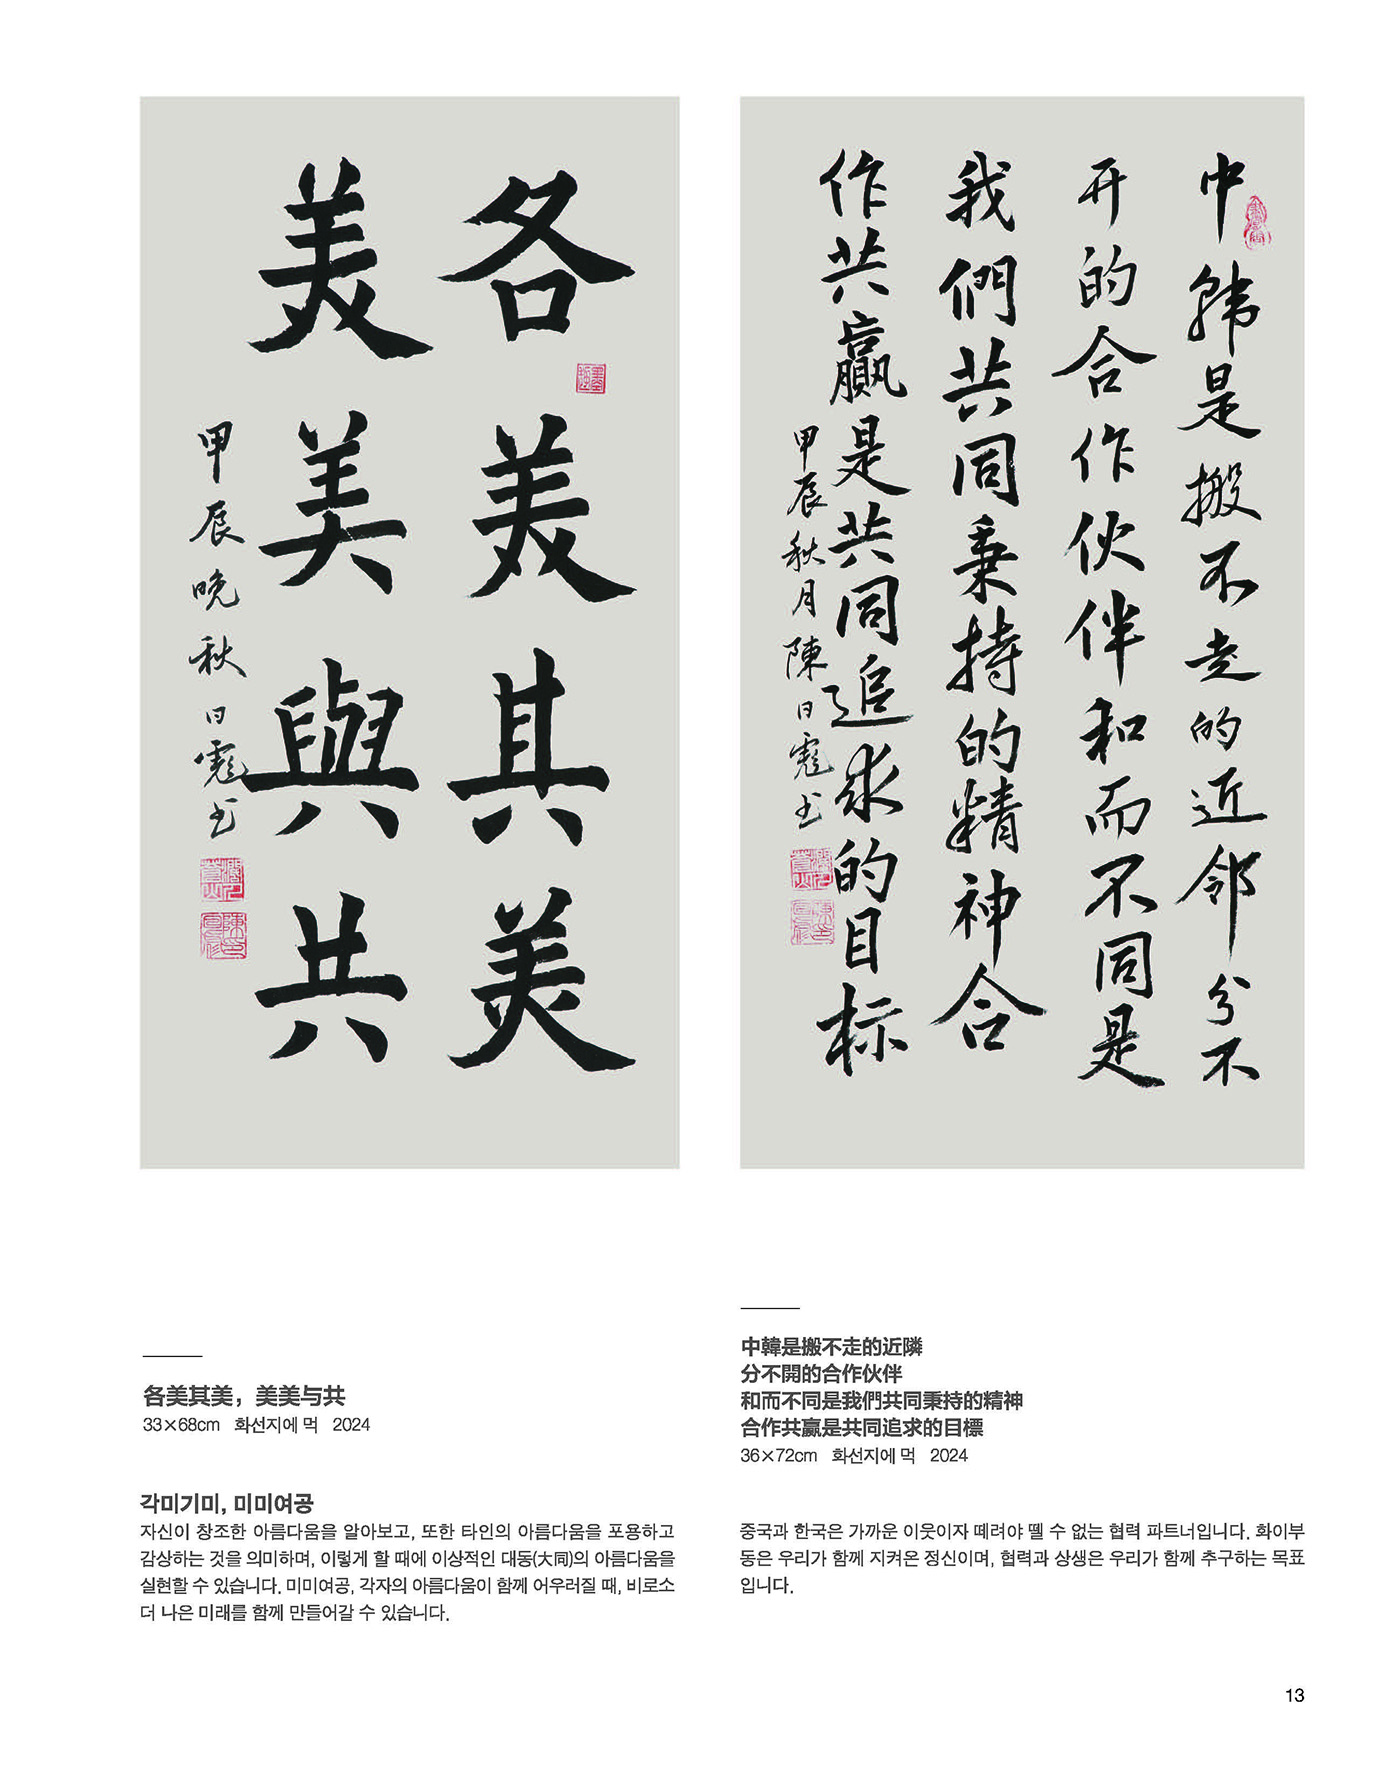 各美其美
美美與共
甲辰晚秋日彪书
中韩是搬不走的近邻分不
开的合作伙伴和而不同是
我們共同秉持的精神合
作共赢是共同追求的目标
甲辰秋月陳日彪书
各美其美，美美与共
33×68cm 화선지에 먹 2024
각미기미, 미미여공
자신이 창조한 아름다움을 알아보고, 또한 타인의 아름다움을 포용하고
감상하는 것을 의미하며, 이렇게 할 때에 이상적인 대동(大同)의 아름다움을
실현할 수 있습니다. 미미여공, 각자의 아름다움이 함께 어우러질 때, 비로소
더 나은 미래를 함께 만들어갈 수 있습니다.
中韓是搬不走的近隣
分不開的合作伙伴
和而不同是我們共同秉持的精神
合作共赢是共同追求的目標
36×72cm 화선지에 먹 2024
중국과 한국은 가까운 이웃이자 떼려야 뗄 수 없는 협력 파트너입니다. 화이부
동은 우리가 함께 지켜온 정신이며, 협력과 상생은 우리가 함께 추구하는 목표
입니다.
13